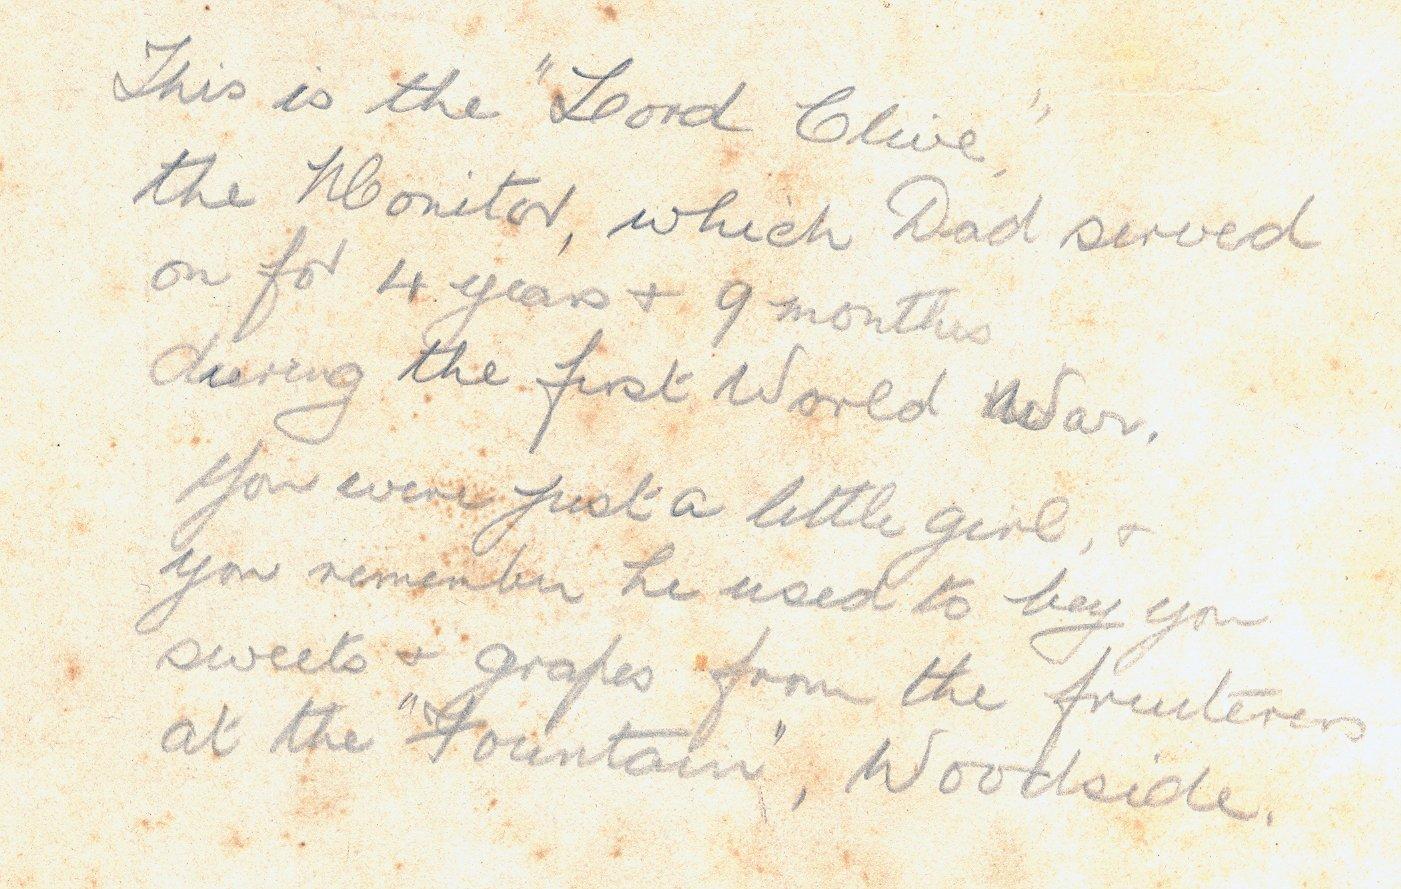 This is the "Lord Clive,"
the Monitor, which Dad served
on for 4 years + 9 months
during the first World War.
You were just a little girl, +
you remember he used to buy you
sweets + grapes from the fruiterers
at the "Fountain", Woodside.